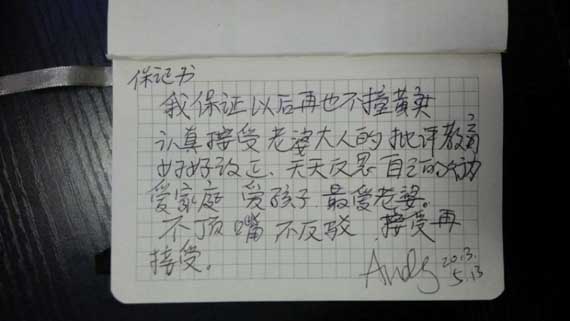 保证书
我保证以后再也不撞黄线
认真接受老婆大人的批评教育
好好改正、天天反思自己的行为
爱家庭 爱孩子 最爱老婆。
不顶嘴 不反驳 接受再
接受。
Andy 2013.
5.13